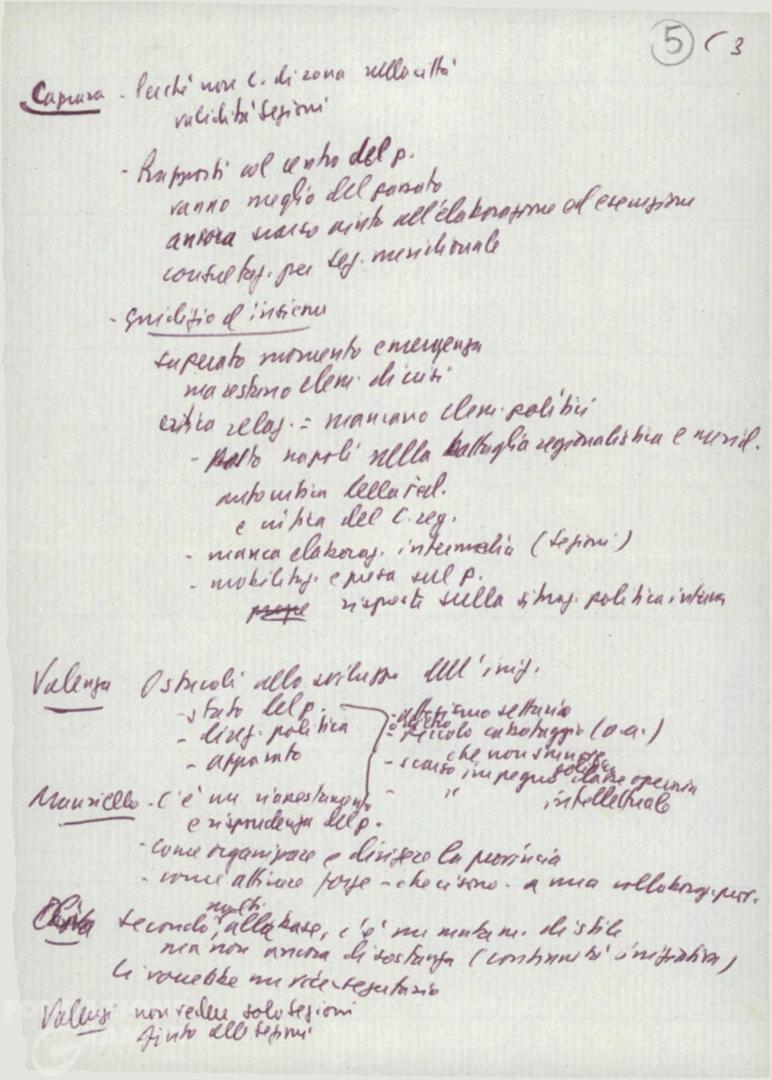 5 ( 3
Caprara - Perché non C. di zona nella città
validità sezioni
- Rapporti col centro del p.
vanno meglio del passato
ancora scarso aiuto all'elaborazione ed esecuzione
consultaz. per seg. meridionale
- Giudizio d'insieme
superato momento emergenza
ma restano elem. di crisi
critica relaz. = mancano elem. politici
- Napoli nella battaglia regionalistica e merid.
autocritica della fed.
e critica del C. reg.
- manca elaboraz. intermedia (sezioni)
- mobilitaz. e presa sul p.
risposte sulla situaz. politica interna
Valenza Ostacoli allo sviluppo dell'iniz.
- stato del p. - settario
- direz. politica - piccolo cabotaggio (o.a.)
- apparato che non
- scarso impegno classe operaia
- " intellettuale
- C'è un
e rispondenza del p.
- come organizzare e dirigere la provincia
- come attivare forze - che ci sono - a una collaboraz.
secondo molti, alla base, c'è un mutam. di stile
ma non ancora di sostanza (continuità iniziativa)
Ci vorrebbe un vice-segretario
Valenzi non vedere solo sezioni
aiuto alle sezioni